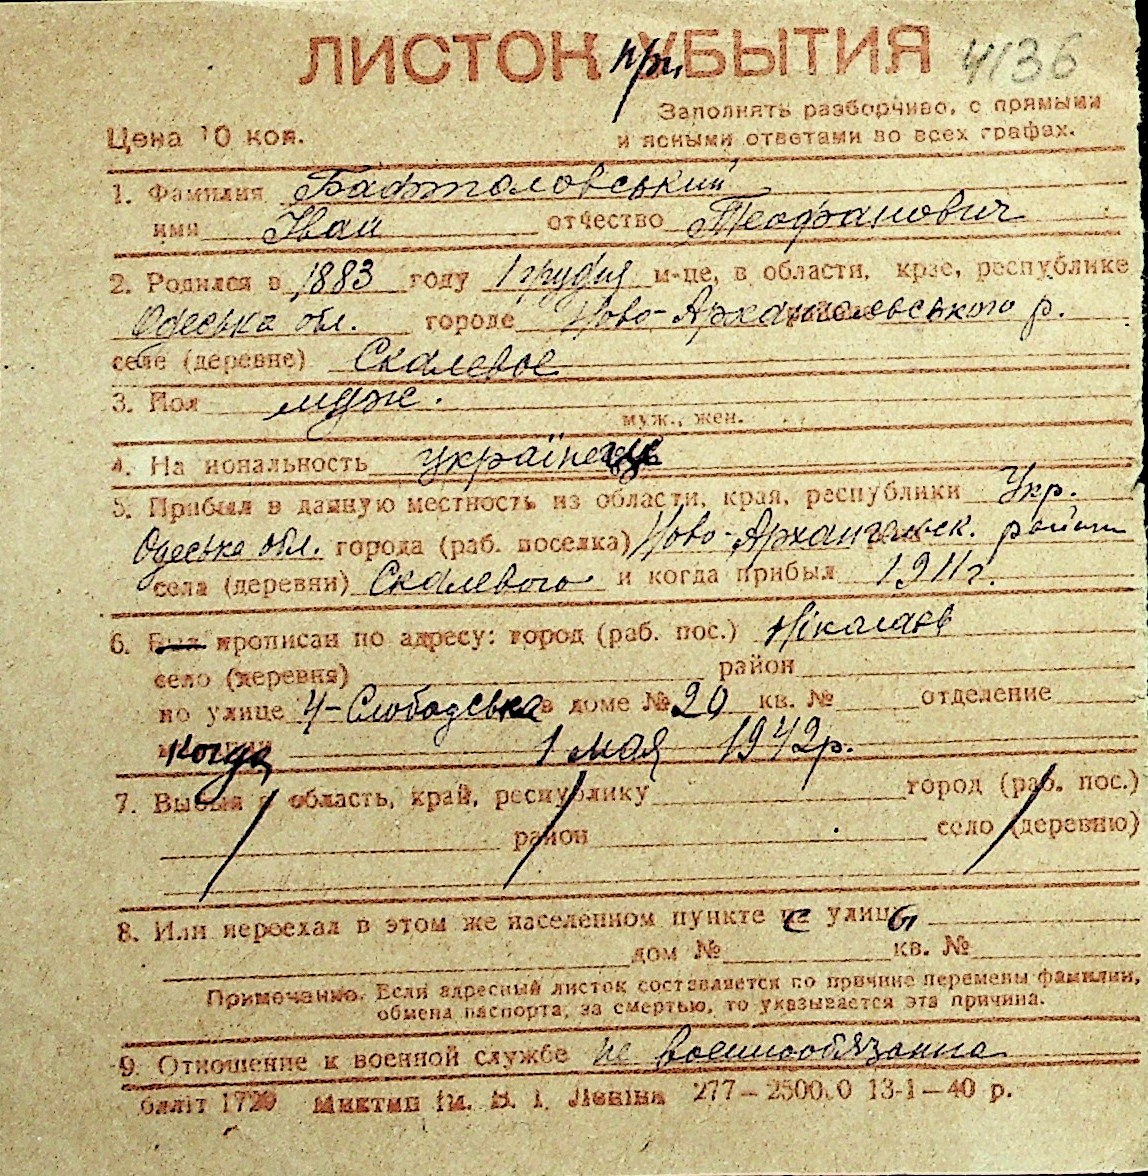 ЛИСТОК при УБЫТИЯ 4136
Заполнять разборчиво, с прямыми
Цена 10 коп. и ясными ответами во всех графах.
1. Фамилия Бафталовський
имя Іван отчество Теофанович
2. Родился в 1883 году 1 грудня м-це, в области, крае, республике
Одеська обл. городе Ново-Архангельського р.
селе (деревне) Скалевое
3. Пол муж.
муж., жен.
4. Национальность українець
5. Прибыл в данную местность из области, края, республики Укр.
Одеська обл. города (раб. поселка) Ново-Архангельск. район
села (деревни) Скалевого и когда прибыл 1911 г.
6. Был прописан по адресу: город (раб. пос.) Ніколаєв
село (деревня) район
по улице 4-Слободська в доме № 20 кв. № отделение
когда 1 мая 1942 р.
7. Выбыл в область, край, республику город (раб. пос.)
район село (деревню)
8. Или переехал в этом же населенном пункте с улицы
дом № кв. №
Примечание. Если адресный листок составляется по причине перемены фамилии,
обмена паспорта, за смертью, то указывается эта причина.
9. Отношение к военной службе не военнообязанна
1729 ім. В. І. Леніна 277—25000 13-1—40 р.